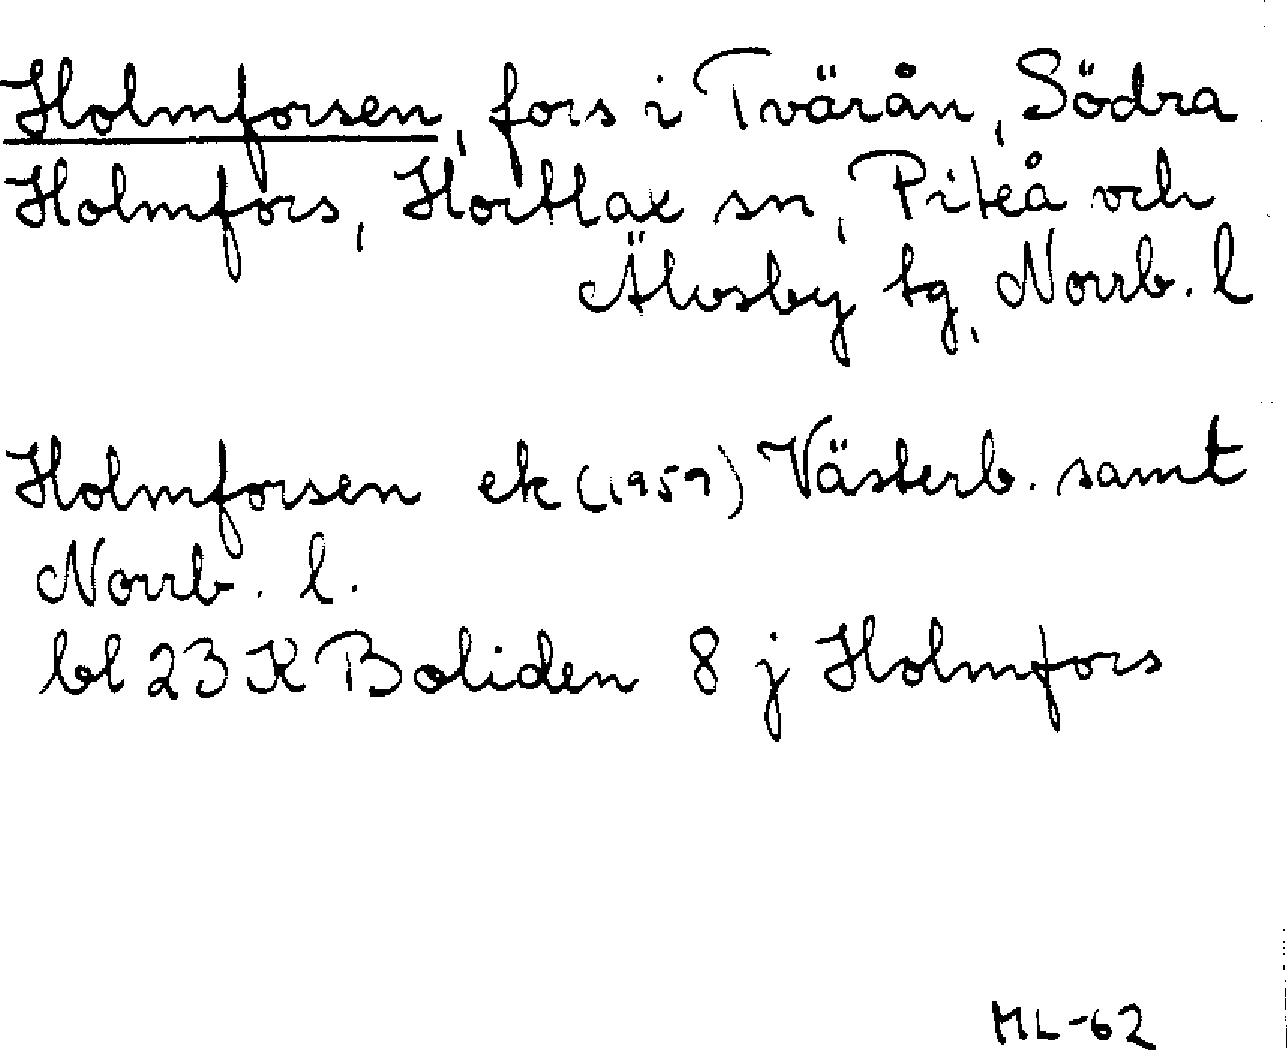 Holmforsen, fors i Tvärån, Södra
Holmfors, Hortlax sn, Piteå och
Älvsby tg, Norrb. l
Holmforsen ek (1959) Västerb. samt
Norrb. l.
bl 23 K Boliden 8 j Holmfors
ML-62